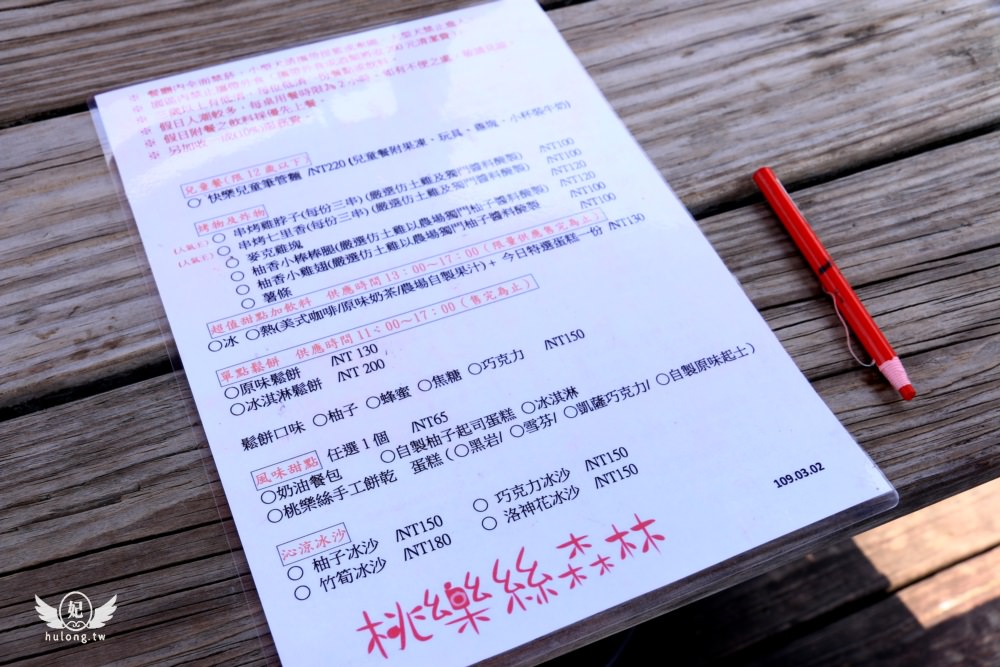 餐廳內全面禁菸
假日人潮較多,每桌用餐時限為2小時,如有不便之處,敬請見諒。
假日附餐之飲料採優先上餐。
另加收一成(10%)服務費。
兒童餐(限12歲以下)
○ 快樂兒童筆管麵 /NT220 (兒童餐附果凍、玩具、薯塊、小杯裝牛奶)
烤物及炸物
(人氣王) ○ 串烤雞脖子(每份三串)(嚴選仿土雞及獨門醬料醃製) /NT100
(人氣王) ○ 串烤七里香(每份三串)(嚴選仿土雞及獨門醬料醃製) /NT100
○ 麥克雞塊 /NT120
○ 柚香小棒棒腿(嚴選仿土雞以農場獨門柚子醬料醃製) /NT120
○ 柚香小雞翅(嚴選仿土雞以農場獨門柚子醬料醃製) /NT100
○ 薯條
超值甜點加飲料 供應時間 13:00～17:00 (限量供應售完為止)
○冰 ○熱(美式咖啡/原味奶茶/農場自製果汁)+ 今日特選蛋糕一份 /NT130
單點鬆餅 供應時間 11:00～17:00 (售完為止)
○原味鬆餅 /NT 130
○冰淇淋鬆餅 /NT 200
鬆餅口味 ○柚子 ○蜂蜜 ○焦糖 ○巧克力 /NT150
風味甜點 任選1個 /NT65
○奶油餐包 ○自製柚子起司蛋糕 ○冰淇淋
○桃樂絲手工餅乾 蛋糕(○黑岩/ ○雪芬/ ○凱薩巧克力/ ○自製原味起士)
沁涼冰沙
○ 柚子冰沙 /NT150 ○ 巧克力冰沙 /NT150
○ 竹筍冰沙 /NT180 ○ 洛神花冰沙 /NT150
109.03.02
桃樂絲森林
妃
hulong.tw